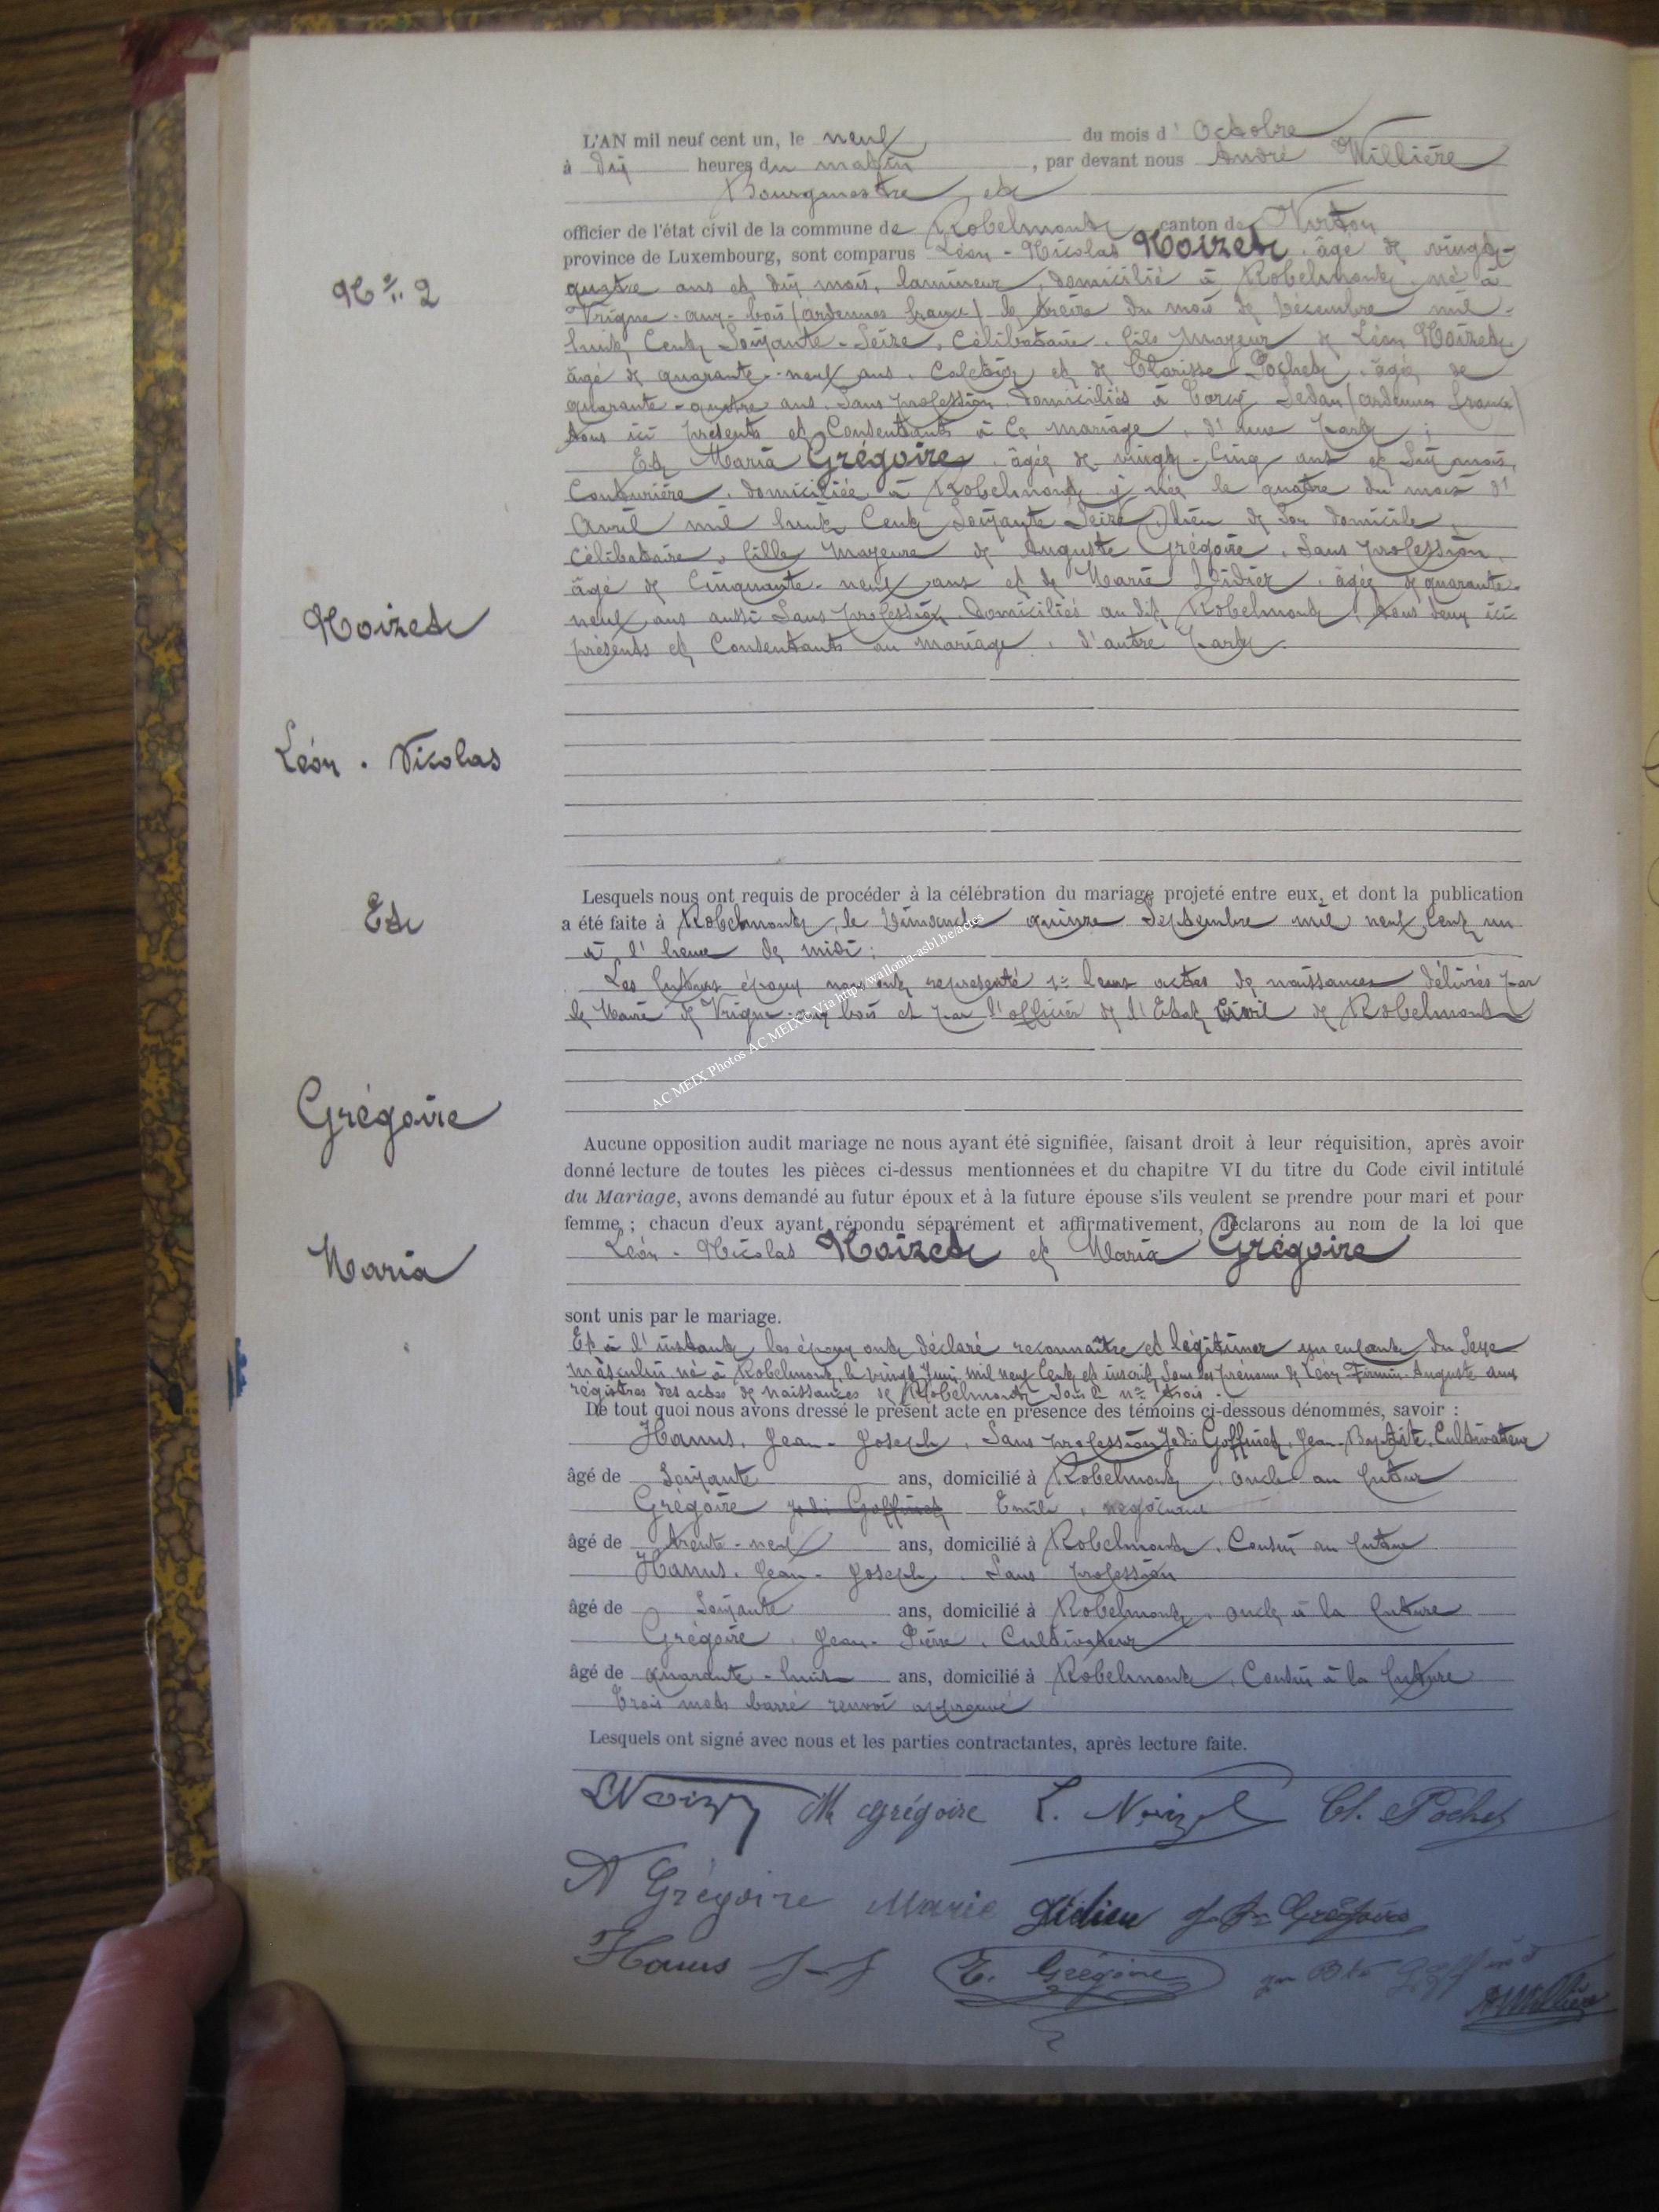 L'AN mil neuf cent un, le neuf du mois d' Octobre
à dix heures du matin, par devant nous André Willière
Bourgmestre et
officier de l'état civil de la commune de Robelmont, canton de Virton
province de Luxembourg, sont comparus Léon-Nicolas Noizet, âgé de vingt-
N° 2
quatre ans et dix mois, lamineur, domicilié à Robelmont, né à
Vrigne-aux-bois (ardennes france) le treize du mois de Décembre mil-
huit Cent Soixante-Seize, Célibataire, fils majeur de Léon Noizet
âgé de quarante-neuf ans, et de Clarisse Pochet, âgée de
quarante-quatre ans, Sans profession, domiciliés à Torcy Sedan (ardennes france)
tous ici présents et Consentants à Ce mariage, d'une part ;
Et Maria Grégoire, âgée de vingt-Cinq ans et Six mois,
Couturière, domiciliée à Robelmont y née le quatre du mois d'
Avril mil huit Cent Soixante Seize, lieu de Son domicile,
Célibataire, fille majeure de Auguste Grégoire, Sans profession,
âgé de Cinquante-neuf ans et de Marie Didier, âgée de quarante-
neuf ans aussi Sans profession, Domiciliés au dit Robelmont, tous deux ici
Noizet
présents et Consentants au mariage, d'autre part.
Léon-Nicolas
Lesquels nous ont requis de procéder à la célébration du mariage projeté entre eux, et dont la publication
Et
a été faite à Robelmont, le Dimanche quinze Septembre mil neuf Cent un
à l'heure de midi ;
Les futurs époux nous ont représenté 1° leurs actes de naissances délivrés par
le Maire de Vrigne-aux bois et par l'officier de l'Etat Civil de Robelmont
AC MEIX Photos AC MEIX & Via http://wallonia-asbl.be/actes
Grégoire
Aucune opposition audit mariage ne nous ayant été signifiée, faisant droit à leur réquisition, après avoir
donné lecture de toutes les pièces ci-dessus mentionnées et du chapitre VI du titre du Code civil intitulé
du Mariage, avons demandé au futur époux et à la future épouse s'ils veulent se prendre pour mari et pour
femme ; chacun d'eux ayant répondu séparément et affirmativement, déclarons au nom de la loi que
Léon-Nicolas Noizet et Maria Grégoire
Maria
sont unis par le mariage.
Et à l'instant les époux ont déclaré reconnaître et légitimer un enfant du Sexe
masculin né à Robelmont, le vingt Juin mil neuf Cent et inscrit Sous les prénoms de Léon-Firmin-Auguste aux
registres des actes de naissances de Robelmont Sous le n° trois.
De tout quoi nous avons dressé le présent acte en présence des témoins ci-dessous dénommés, savoir :
Hanus, Jean-Joseph, Sans profession Je dis Goffinet, Jean-Baptiste, Cultivateur
âgé de Soixante ans, domicilié à Robelmont, oncle au futur
Grégoire je dis Goffinet Emile, négociant
âgé de trente-neuf ans, domicilié à Robelmont, Cousin au futur
Hanus, Jean-Joseph, Sans profession
âgé de Soixante ans, domicilié à Robelmont, oncle à la future
Grégoire, Jean-Pierre, Cultivateur
âgé de quarante-huit ans, domicilié à Robelmont, Cousin à la future
Trois mots barré renvoi approuvé
Lesquels ont signé avec nous et les parties contractantes, après lecture faite.
LNoizet M Grégoire L. Noizet Cl. Pochet
A Grégoire Marie Didier J. P. Grégoire
Hanus J-J E. Grégoire Jn Bte Goffinet
AWillière